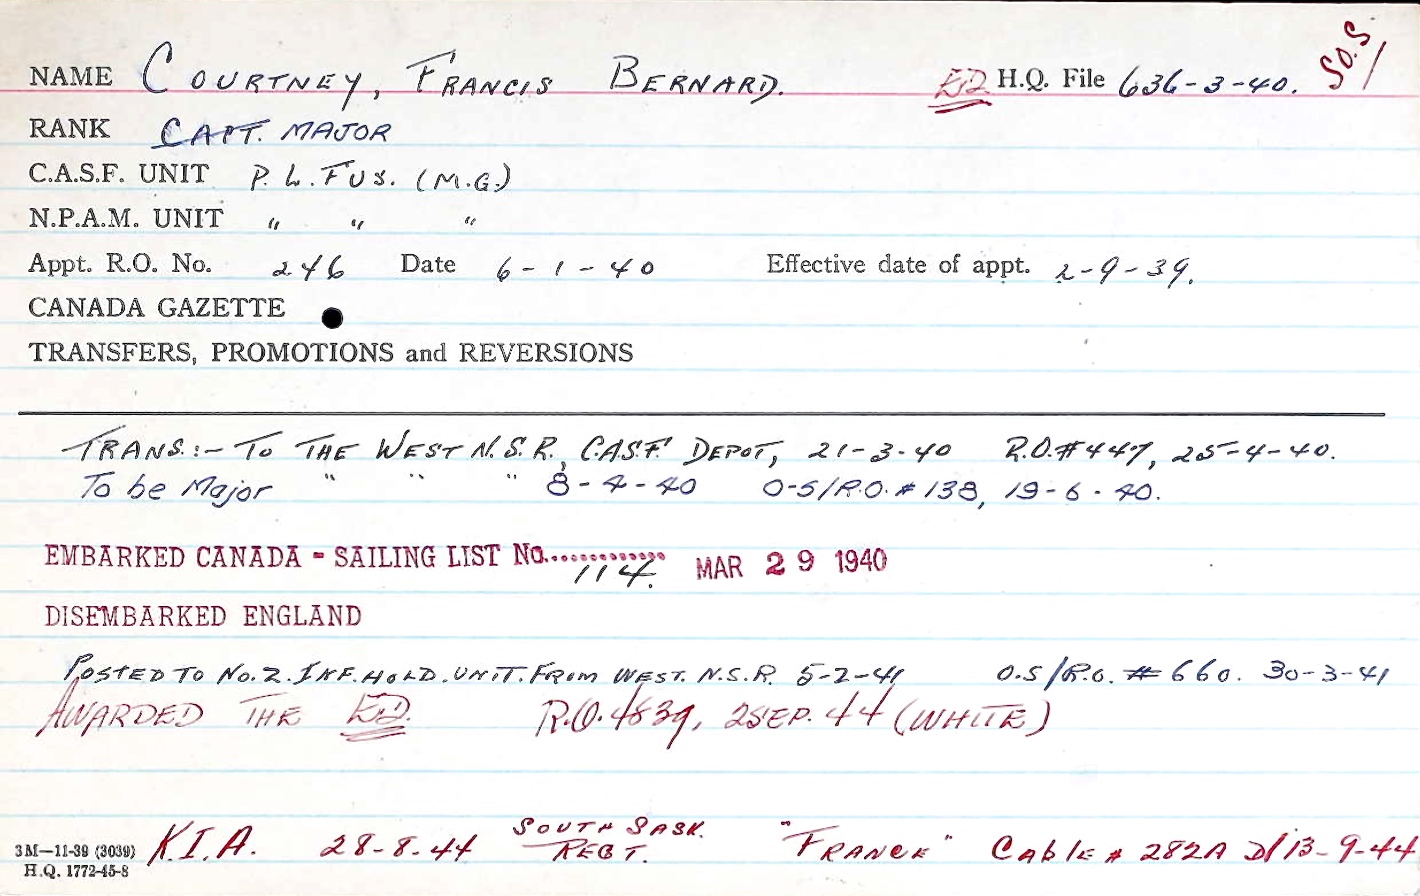 NAME COURTNEY, FRANCIS BERNARD. ED H.Q. File 636-3-40. S.O.S
RANK CAPT. MAJOR
C.A.S.F. UNIT P. L. FUS. (M.G.)
N.P.A.M. UNIT " " "
Appt. R.O. No. 246 Date 6-1-40 Effective date of appt. 2-9-39.
CANADA GAZETTE
TRANSFERS, PROMOTIONS and REVERSIONS
TRANS:- TO THE WEST N.S.R., C.A.S.F. DEPOT, 21-3-40 R.O.#447, 25-4-40.
To be Major " " " 8-4-40 O-S/R.O.#138, 19-6-40.
EMBARKED CANADA - SAILING LIST No. 114. MAR 29 1940
DISEMBARKED ENGLAND
POSTED TO No. 2. INF. HOLD. UNIT. FROM WEST. N.S.R. 5-2-41 O.S/R.O. #660. 30-3-41
AWARDED THE ED. R.O. 4839, 2 SEP. 44 (WHITE)
3M—11-39 (3039) K.I.A. 28-8-44 SOUTH SASK. REGT. "FRANCE" Cable # 282A D/13-9-44
H.Q. 1772-45-8